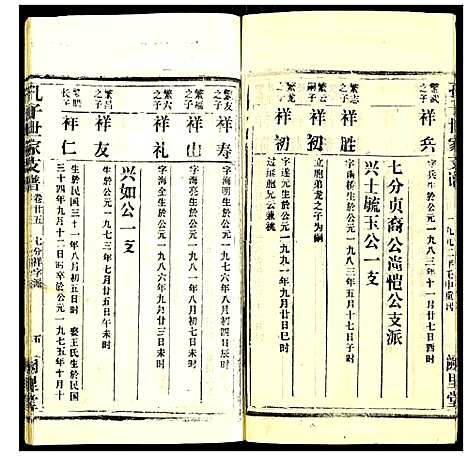 繁武之子
祥兵
字兵生於公元一九八三年八月初七日酉时
七分贞裔公尚恺公支派
兴士毓玉公一支
繁志之子
祥胜
生於公元一九八三年五月十七日丑时
繁云之子
祥初
立胞弟龙之子为嗣
繁龙之子
祥初
字遂元生於公元一九八一年九月廿日巳时
过继胞兄云兼祧
繁友之子
祥寿
字海明生於公元一九八一年八月初四日辰时
繁福之子
祥山
字海亮生於公元一九八一年八月初七日未时
繁六之子
祥礼
字海生於公元一九八六年九月廿三日未时
兴如公一支
繁昌之子
祥友
生於公元一九七三年七月初五日午未时
繁鹏长子
祥仁
生於民国三十一年八月初五日时 娶王氏生於民国
三十四年九月十二日时卒於公元一九七五年十月十
孔子世家支谱
卷廿五
七分祥字派
五
阙里堂
孔子世家支谱
一九九二年壬申重修
阙里堂